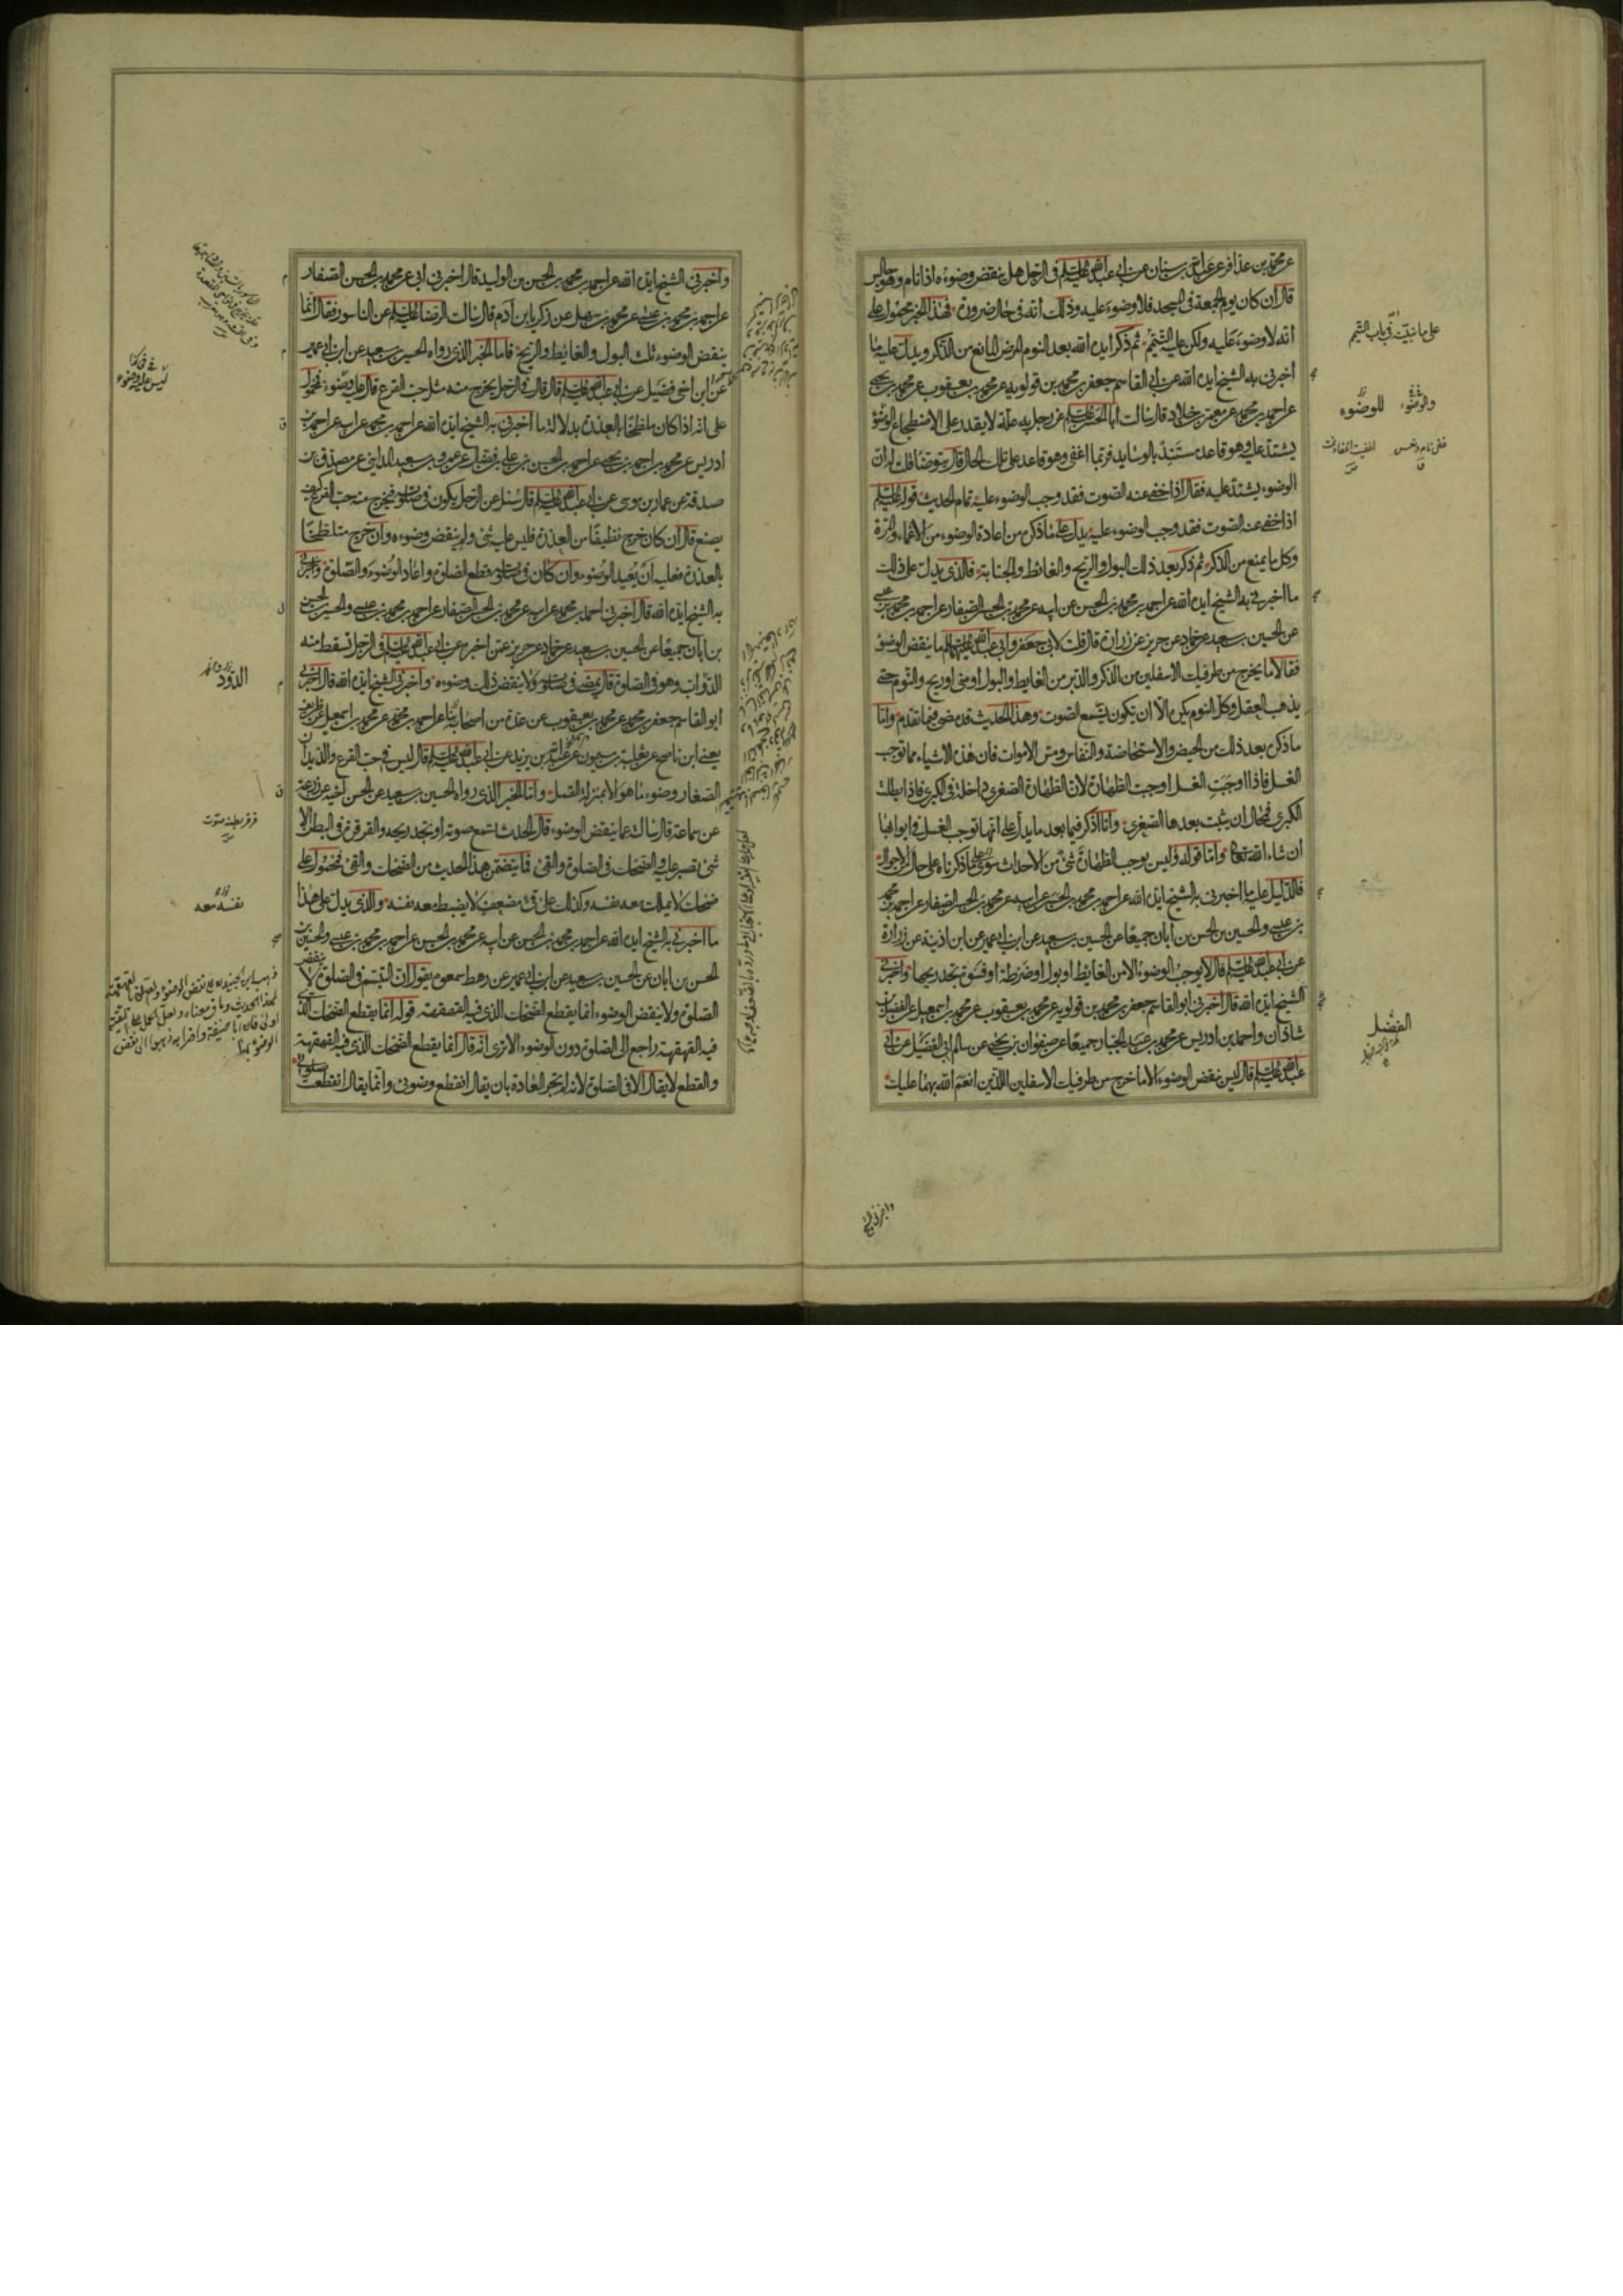 عن محمد بن عذافر عن عبدالله بن سنان عن ابی عبدالله علیه السلم فی الرجل هل ینقض وضوءه اذا نام وهو جالس
قال ان کان یوم الجمعة فی المسجد فلا وضوء علیه وذلک انه فی حال ضرورة فهذا الخبر محمول علی
انه لا وضوء علیه ولکن علیه التیمم ثم ذکر ایده الله بعد النوم المرض المانع من الذکر ویدل علیه ما
اخبرنی به الشیخ ایده الله عن ابی القاسم جعفر بن محمد بن قولویه عن محمد بن یعقوب عن محمد بن یحیی
عن احمد بن محمد عن معمر بن خلاد قال سالت ابا الحسن علیه السلم عن رجل به علة لا یقدر علی الاضطجاع والوضوء
یشتد علیه وهو قاعد مستند بالوساید فربما اغفی وهو قاعد علی تلک الحال قال یتوضا قلت له ان
الوضوء یشتد علیه فقال اذا خفی عنه الصوت فقد وجب الوضوء علیه تمام الحدیث قوله علیه السلم
اذا خفی عنه الصوت فقد وجب الوضوء علیه یدل علی ما ذکر من اعادة الوضوء من الاغماء والمرة
وکل ما یمنع من الذکر ثم ذکر بعد ذلک البول والریح والغائط والجنابة فالذی یدل علی ذلک
ما اخبرنی به الشیخ ایده الله عن احمد بن محمد بن الحسن عن ابیه عن محمد بن الحسن الصفار عن احمد بن محمد بن عیسی
عن الحسین بن سعید عن حماد عن حریز عن زرارة قال قلت لابی جعفر وابی عبدالله علیهما السلم ما ینقض الوضوء
فقالا ما یخرج من طرفیک الاسفلین من الذکر والدبر من الغایط والبول او منی او ریح والنوم حتی
یذهب العقل وکل النوم یکره الا ان یکون یسمع الصوت وهذا الحدیث قد مضی فیما تقدم واما
ما ذکره بعد ذلک من الحیض والاستحاضة والنفاس ومس الاموات فان هذه الاشیاء مما توجب
الغسل فاذا اوجبت الغسل اوجبت الطهارة لان الطهارة الصغری داخلة فی الکبری فاذا بطلت
الکبری فمحال ان یثبت بعدها الصغری وانا اذکر فیما بعد ما یدل علی انها توجب الغسل فی ابوابها
ان شاء الله تعالی واما قوله ولیس یوجب الطهارة شئ من الاحداث سوی ما ذکرناه علی حال من الاحوال
فالدلیل علیه ما اخبرنی به الشیخ ایده الله عن احمد بن محمد بن الحسن عن ابیه عن محمد بن الحسن الصفار عن احمد بن محمد
بن عیسی والحسین بن الحسن بن ابان جمیعا عن الحسین بن سعید عن ابن ابی عمیر عن ابن اذینة عن زرارة
عن ابی عبدالله علیه السلم قال لا یوجب الوضوء الا من الغایط او بول او ضرطة او فسوة تجد ریحها واخبرنی
الشیخ ایده الله قال اخبرنی ابو القاسم جعفر بن محمد بن قولویه عن محمد بن یعقوب عن محمد بن اسمعیل عن الفضل بن
شاذان واحمد بن ادریس عن محمد بن عبدالجبار جمیعا عن صفوان بن یحیی عن سالم ابی الفضل عن ابی
عبدالله علیه السلم قال لیس ینقض الوضوء الا ما خرج من طرفیک الاسفلین اللذین انعم الله بهما علیک
علی ما نبینه فی باب التیمم
والوضوء للوضوء
الفضل
واخبرنی الشیخ
واخبرنی الشیخ ایده الله عن احمد بن محمد بن الحسن بن الولید قال اخبرنی ابی عن محمد بن الحسن الصفار
عن احمد بن محمد بن عیسی عن محمد بن سهل عن زکریا بن آدم قال سالت الرضا علیه السلم عن الناسور فقال انما
ینقض الوضوء ثلث البول والغایط والریح فاما الخبر الذی رواه الحسین بن سعید عن ابن ابی عمیر
عن ابن اخی فضیل عن ابی عبدالله علیه السلم قال قال فی الرجل یخرج منه مثل حب القرع قال علیه وضوء فمحمول
علی انه اذا کان ملطخا بالعذرة بدلالة ما اخبرنی به الشیخ ایده الله عن احمد بن محمد عن ابیه عن احمد بن
ادریس عن محمد بن احمد بن یحیی عن احمد بن الحسن بن علی بن فضال عن عمرو بن سعید المداینی عن مصدق بن
صدقة عن عمار بن موسی عن ابی عبدالله علیه السلم قال سئل عن الرجل یکون فی صلوته فیخرج منه حب القرع کیف
یصنع قال ان کان خرج نظیفا من العذرة فلیس علیه شئ ولم ینقض وضوءه وان خرج متلطخا
بالعذرة فعلیه ان یعید الوضوء وان کان فی صلوته قطع الصلوة واعاد الوضوء والصلوة واخبرنی
به الشیخ ایده الله قال اخبرنی احمد بن محمد عن ابیه عن محمد بن الحسن الصفار عن احمد بن محمد بن عیسی والحسین بن الحسن
بن ابان جمیعا عن الحسین بن سعید عن حماد عن حریز عمن اخبره عن ابی عبدالله علیه السلم فی الرجل تسقط منه
الدواب وهو فی الصلوة قال یمضی فی صلوته ولا ینقض ذلک وضوءه واخبرنی الشیخ ایده الله قال اخبرنی
ابو القاسم جعفر بن محمد عن محمد بن یعقوب عن عدة من اصحابنا عن احمد بن محمد عن محمد بن اسمعیل عن ظریف
یعنی ابن ناصح عن ثعلبة بن میمون عن عبدالله بن یزید عن ابی عبدالله علیه السلم قال لیس فی حب القرع والدیدان
الصغار وضوء ما هو الا بمنزلة القمل واما الخبر الذی رواه الحسین بن سعید عن الحسن اخیه عن زرعة
عن سماعة قال سالته عما ینقض الوضوء قال الحدث تسمع صوته او تجد ریحه والقرقرة فی البطن الا
شئ تصبر علیه والضحک فی الصلوة والقئ فما یتضمن هذا الحدیث من الضحک والقئ فمحمول علی
ضحک لا یملک معه نفسه وکذلک علی قئ مضعف لا یضبط معه نفسه والذی یدل علی هذا
ما اخبرنی به الشیخ ایده الله عن احمد بن محمد بن الحسن عن ابیه عن محمد بن الحسن عن احمد بن محمد بن عیسی والحسین بن
الحسن بن ابان عن الحسین بن سعید عن ابن ابی عمیر عن رهط سمعوه یقول ان التبسم فی الصلوة لا ینقض
الصلوة ولا ینقض الوضوء انما یقطع الضحک الذی فیه القهقهة قوله انما یقطع الضحک الذی
فیه القهقهة راجع الی الصلوة دون الوضوء الا تری انه قال انما یقطع الضحک الذی فیه القهقهة
والقطع لا یقال الا فی الصلوة لانه لم تجر العادة بان یقال انقطع وضوئی وانما یقال انقطعت صلوتی
لیس علیه وضوء
الدود
نفسه معه